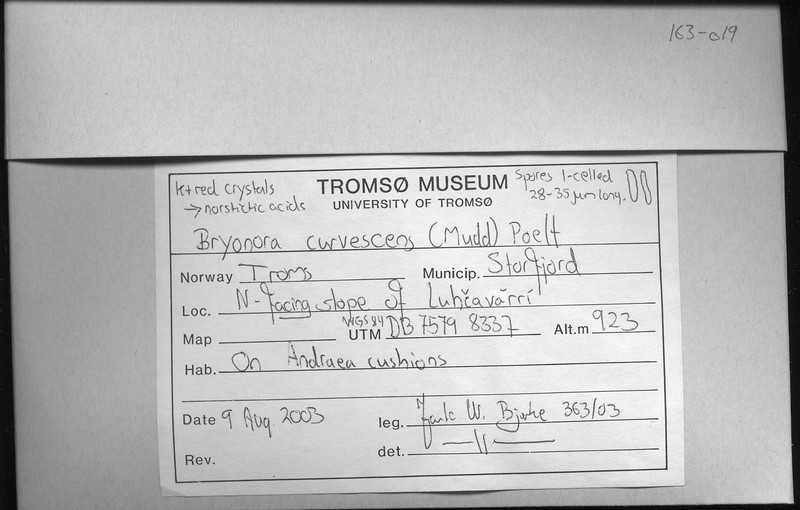 163-019
K+ red crystals
→ norstictic acids
TROMSØ MUSEUM
UNIVERSITY OF TROMSØ
Spores 1-celled
28-35 µm long.
Bryonora curvescens (Mudd) Poelt
Norway Troms Municip. Storfjord
Loc. N-facing slope of Luhčavárri
Map WGS84 UTM DB 7579 8337 Alt.m 923
Hab. On Andraea cushions
Date 9 Aug 2003 leg. Jarle W. Bjerke 363/03
Rev. det. —||—